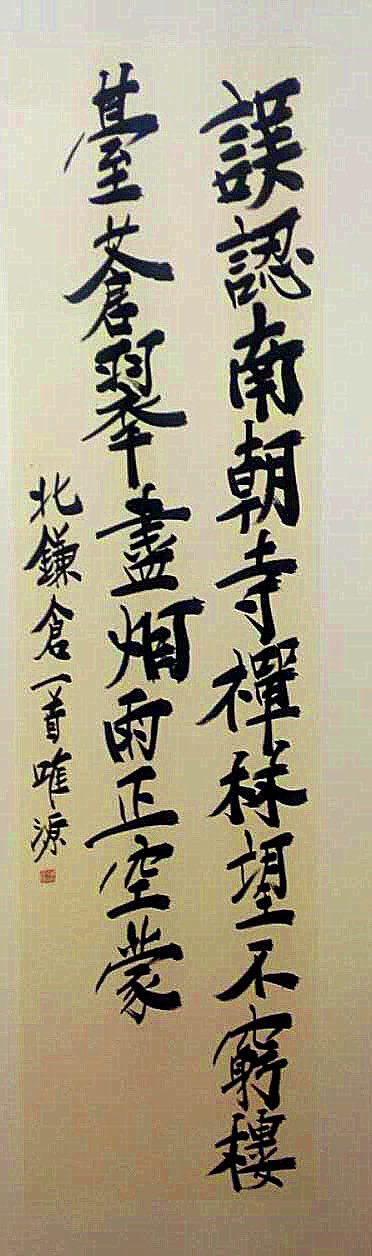 誤認南朝寺禪林望不窮樓
臺蒼翠盡烟雨正空蒙
北鎌倉一首唯源